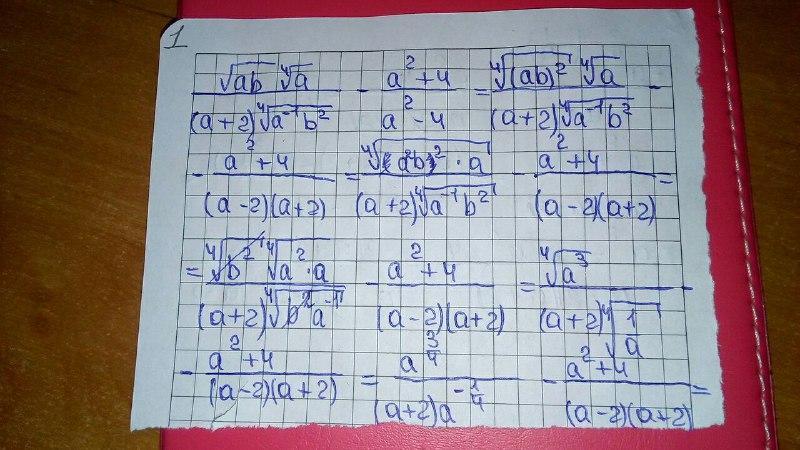 1
√(ab) ∜a / ((a+2) ∜(a⁻¹b²)) - (a²+4)/(a²-4) = ∜((ab)²) ∜a / ((a+2) ∜(a⁻¹b²)) -
- (a²+4)/((a-2)(a+2)) = ∜((ab)²·a) / ((a+2) ∜(a⁻¹b²)) - (a²+4)/((a-2)(a+2)) =
= ∜(b²) ∜(a²·a) / ((a+2) ∜(b²a⁻¹)) - (a²+4)/((a-2)(a+2)) = ∜(a³) / ((a+2) ∜(1/a)) -
- (a²+4)/((a-2)(a+2)) = a^(3/4) / ((a+2)a^(-1/4)) - (a²+4)/((a-2)(a+2)) =